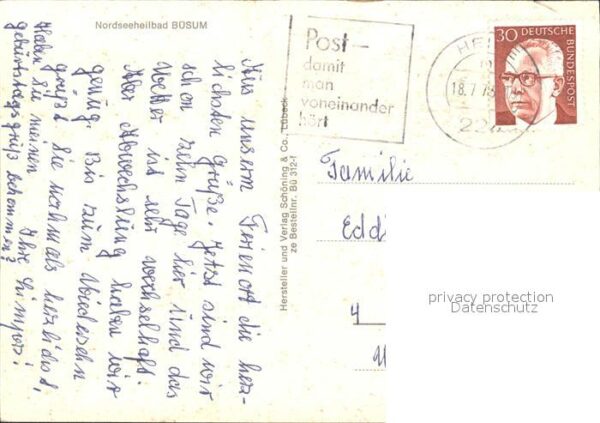 Nordseeheilbad BÜSUM
Aus unserm Ferienort die herz-
lichsten Grüße. Jetzt sind wir
schon zehn Tage hier und das
Wetter ist sehr wechselhaft.
Aber Abwechslung haben wir
genug. Bis zum Wiedersehn
grüßt Sie nochmals herzlichst,
Ihre
Haben Sie meinen
Geburtstagsgruß bekommen?
Hersteller und Verlag Schöning & Co., Lübeck
ze Bestellnr. Bü 312-f
Post –
damit
man
voneinander
hört
18.7.7
22
30 DEUTSCHE
BUNDESPOST
Familie
Edd
4
privacy protection
Datenschutz